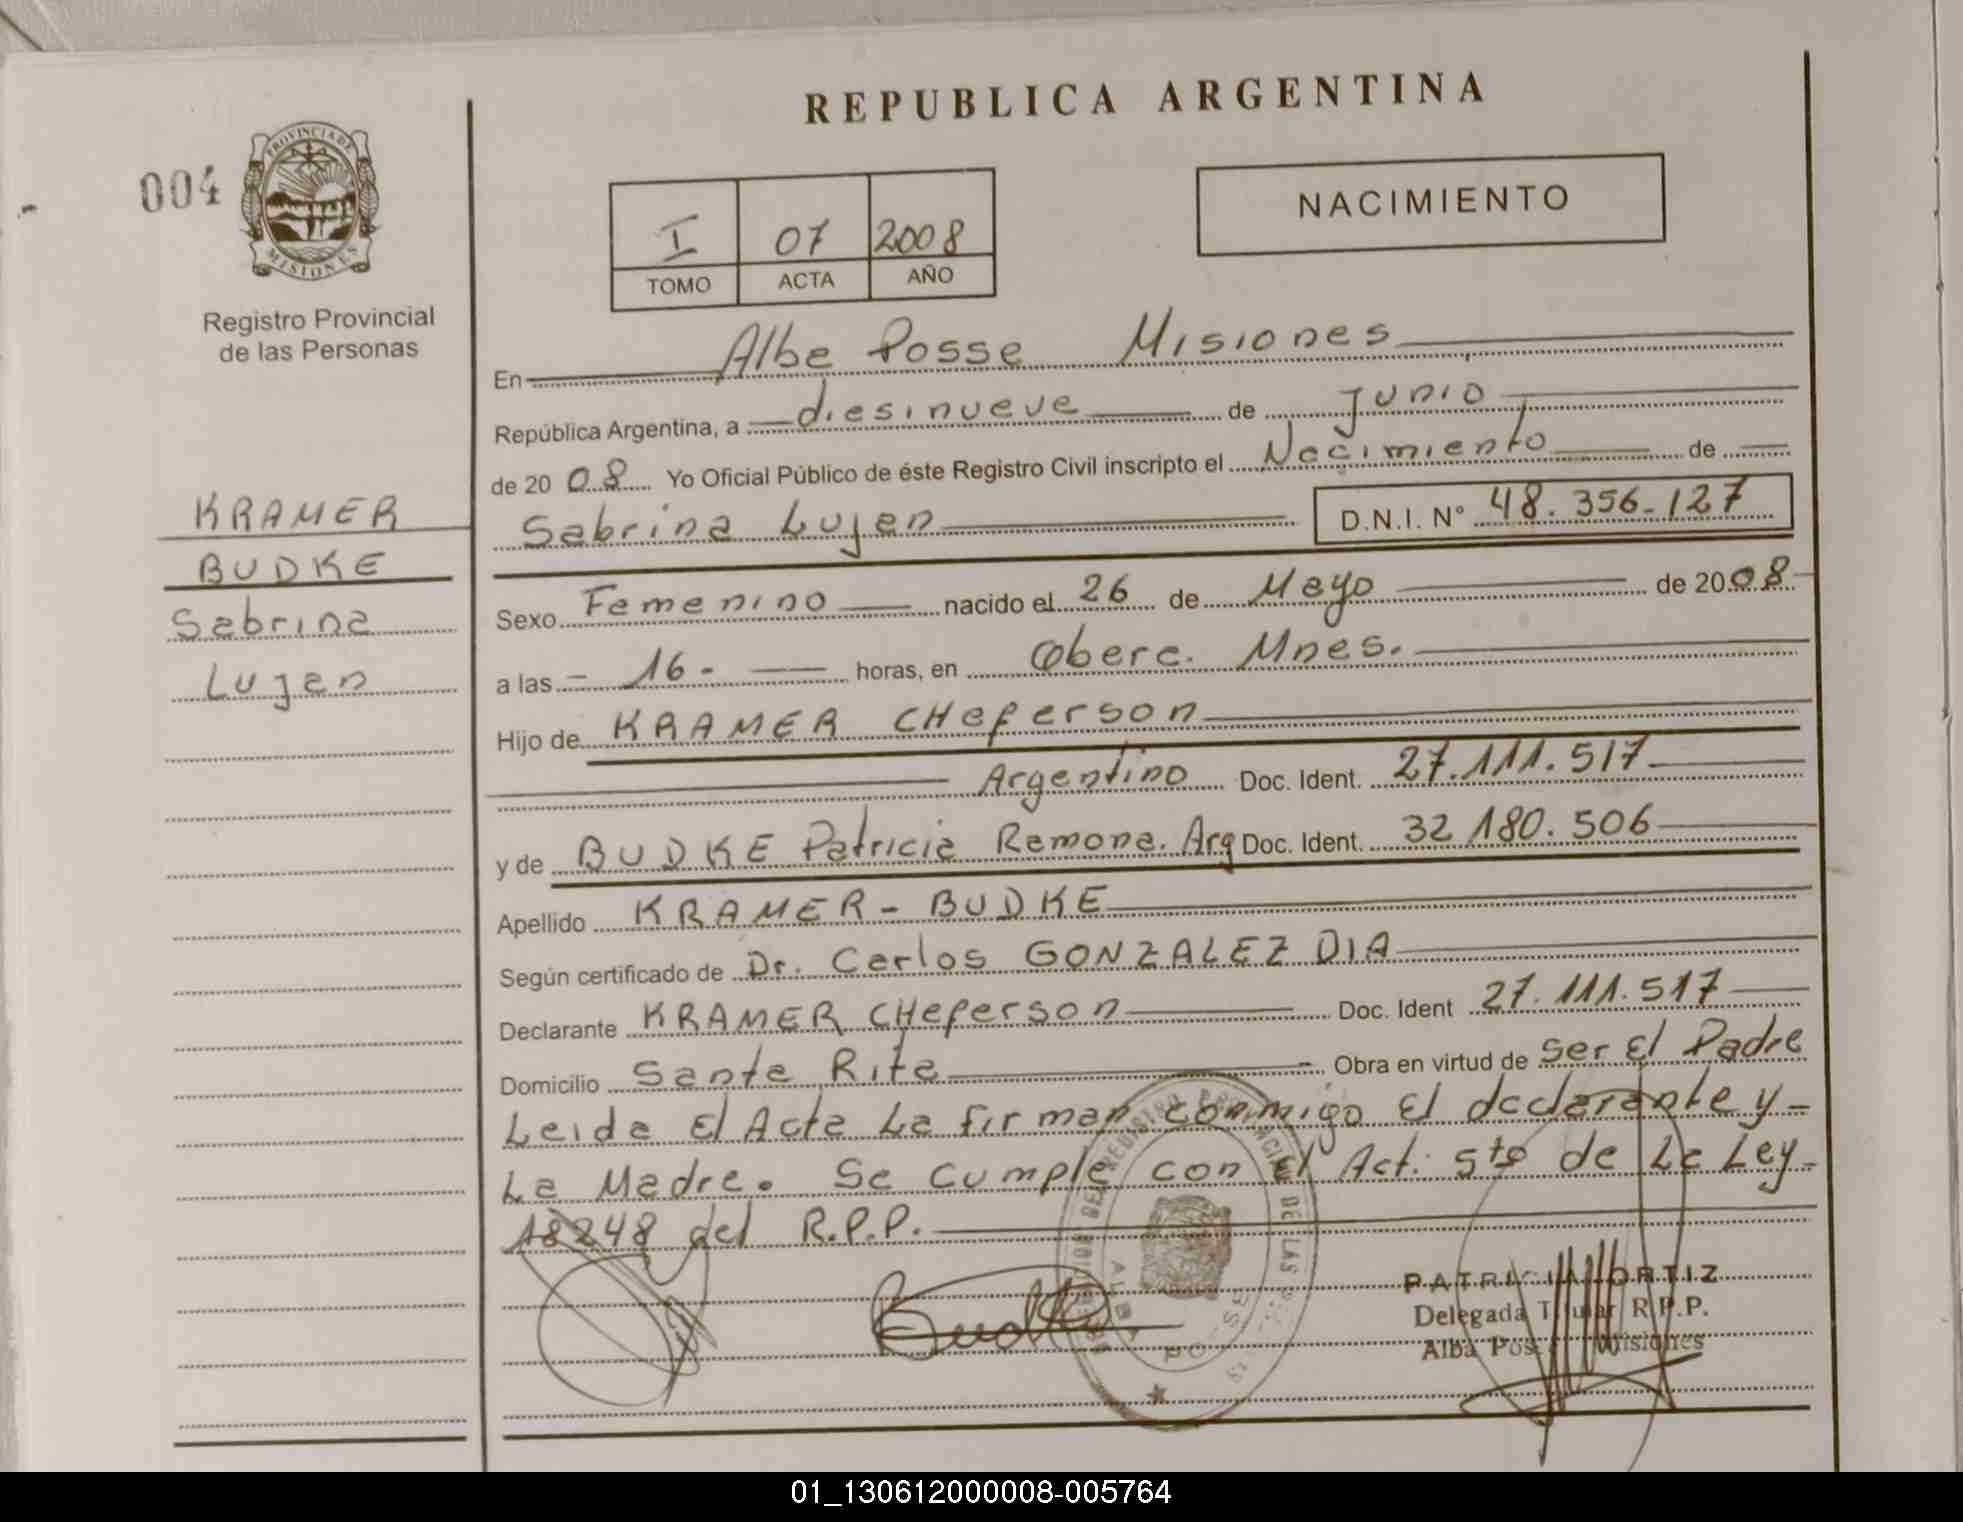 REPUBLICA ARGENTINA
004
PROVINCIA DE
MISIONES
Registro Provincial
de las Personas
I 07 2008
TOMO ACTA AÑO
NACIMIENTO
KRAMER
BUDKE
Sabrina
Lujan
En Alba Posse Misiones
República Argentina, a diesinueve de junio
de 2008 Yo Oficial Público de éste Registro Civil inscripto el Nacimiento de
Sabrina Lujan D.N.I. N° 48.356.127
Sexo Femenino nacido el 26 de Mayo de 2008
a las - 16- horas, en Obera. Mnes.
Hijo de KRAMER CHeferson
Argentino Doc. Ident. 27.111.517
y de BUDKE Patricia Ramona. Arg Doc. Ident. 32 180.506
Apellido KRAMER - BUDKE
Según certificado de Dr. Carlos GONZALEZ DIA
Declarante KRAMER CHeferson Doc. Ident 27.111.517
Domicilio Santa Rita Obra en virtud de Ser El Padre
Leida El Acta La firman conmigo El declarante y -
La Madre. Se cumple con El Act: 5to de La Ley -
18248 del R.P.P.
Budke
PATRICIA ORTIZ
Delegada Titular R.P.P.
Alba Posse Misiones
01_130612000008-005764